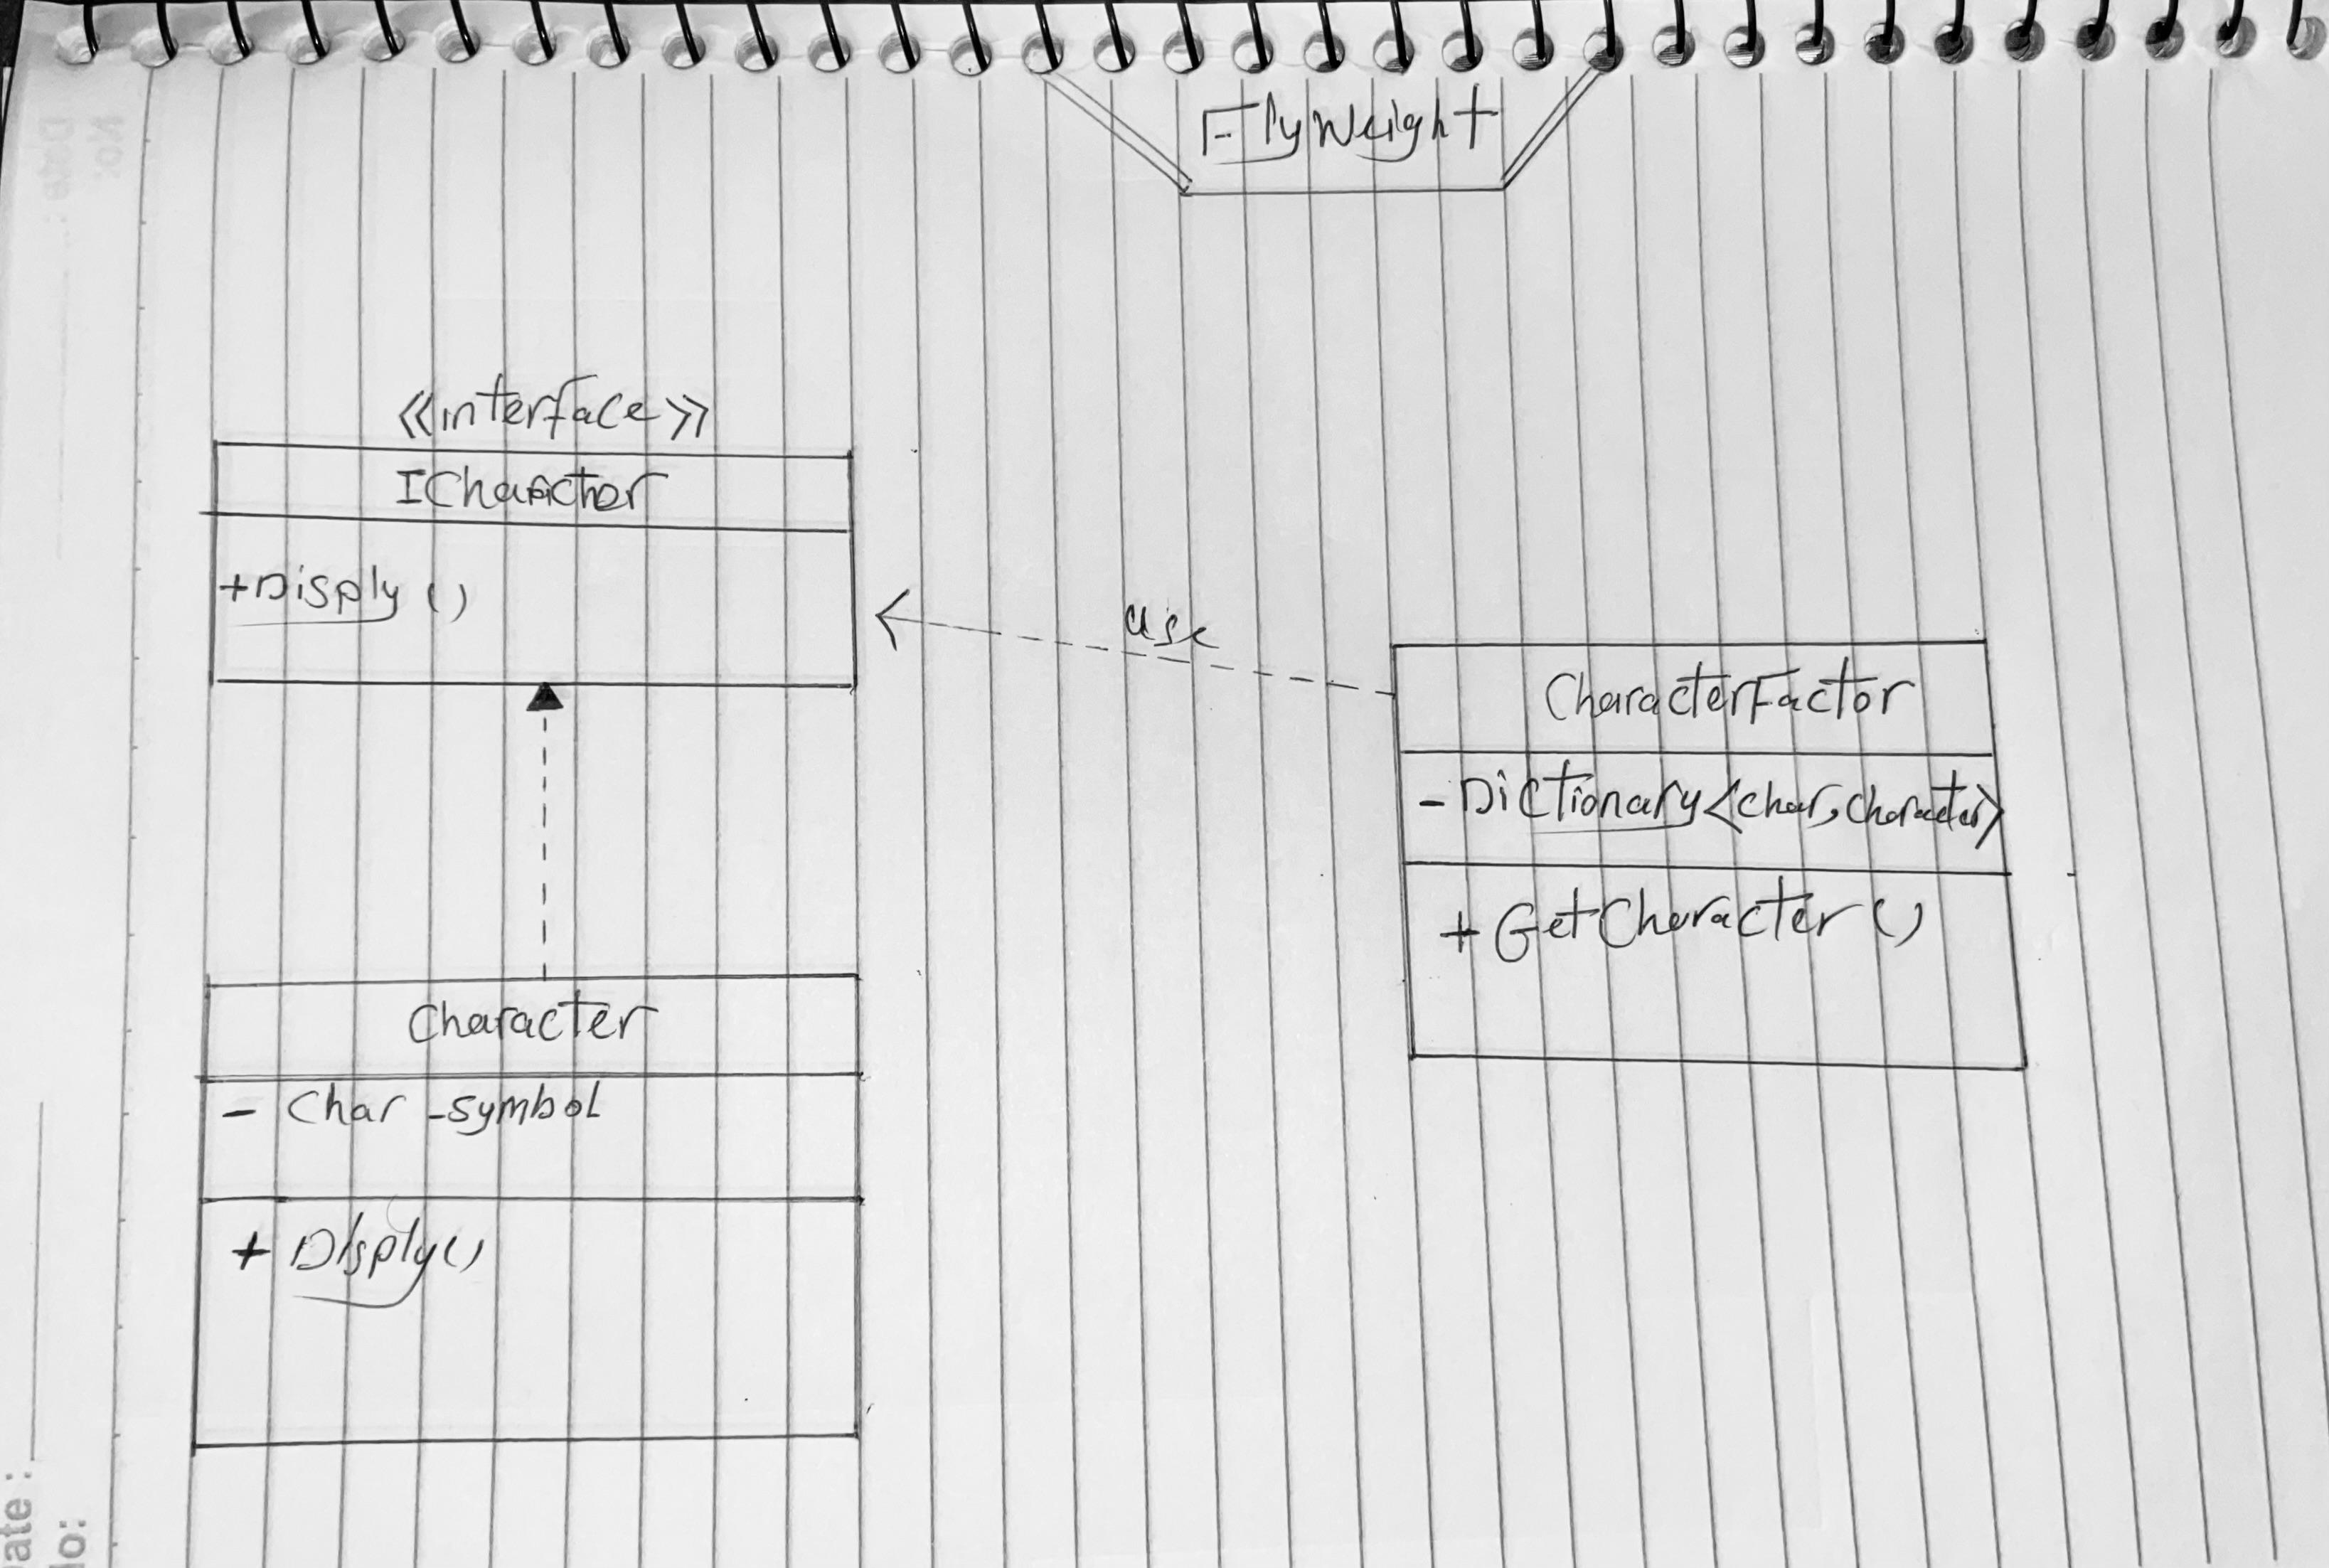 FlyWeight
<<interface>>
ICharacter
+Disply ()
use
CharacterFactor
- Dictionary<char,character>
+ GetCharacter ()
Character
- Char _symbol
+ Disply()
No:
Date :
Date :
No: